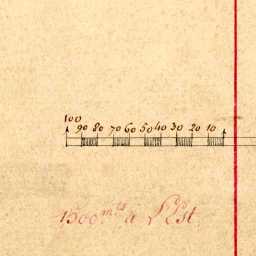 100
90 80 70 60 50 40 30 20 10
1500 mts a l'Est.